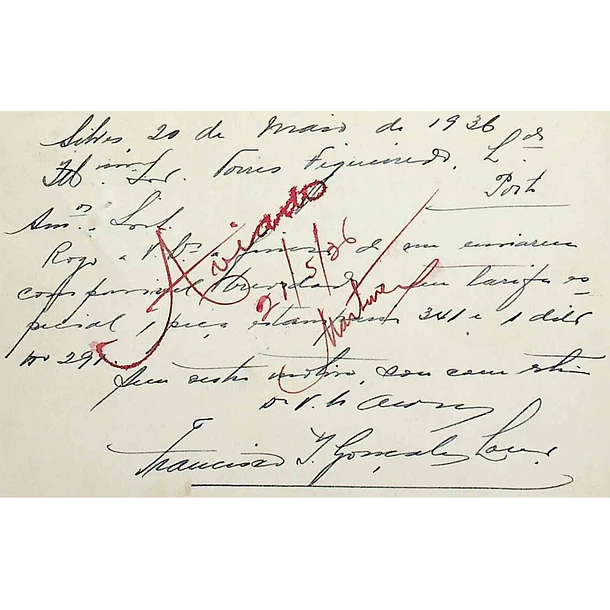 Silves 20 de Maio de 1936
Illmos Snrs. Torres Figueiredo, L.da
Porto
Amos. Snrs.
Rogo a V. Sas. de me enviarem
com possivel brevidade em tarifa es
pecial 1 peça estamparia 341 e 1 dita
No 291.
Sem outro motivo, sou com estima
De V. Sas
Francisco T. Gonçalves
Aviado
21/5/36